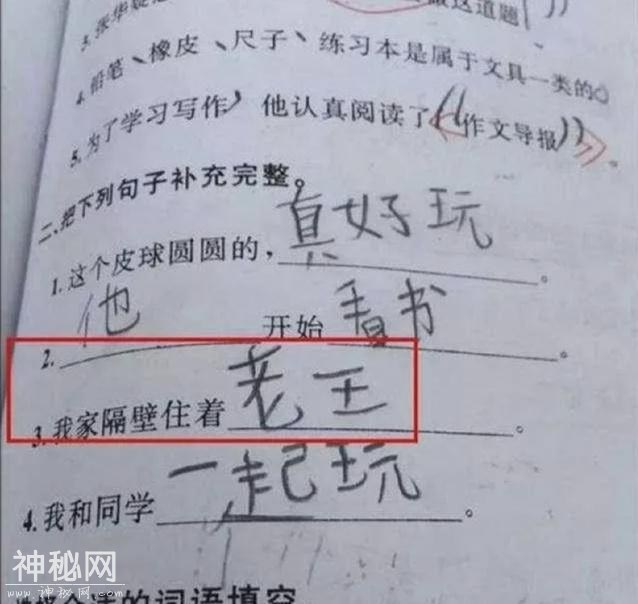 3. 张华
做这道题()
4. 铅笔、橡皮、尺子、练习本是属于文具一类的。
5. 为了学习写作,他认真阅读了《作文导报》。
二、把下列句子补充完整。
1. 这个皮球圆圆的,真好玩。
2. 他开始看书。
3. 我家隔壁住着老王。
4. 我和同学一起玩。
的词语填空
神秘网
www.神秘网.com